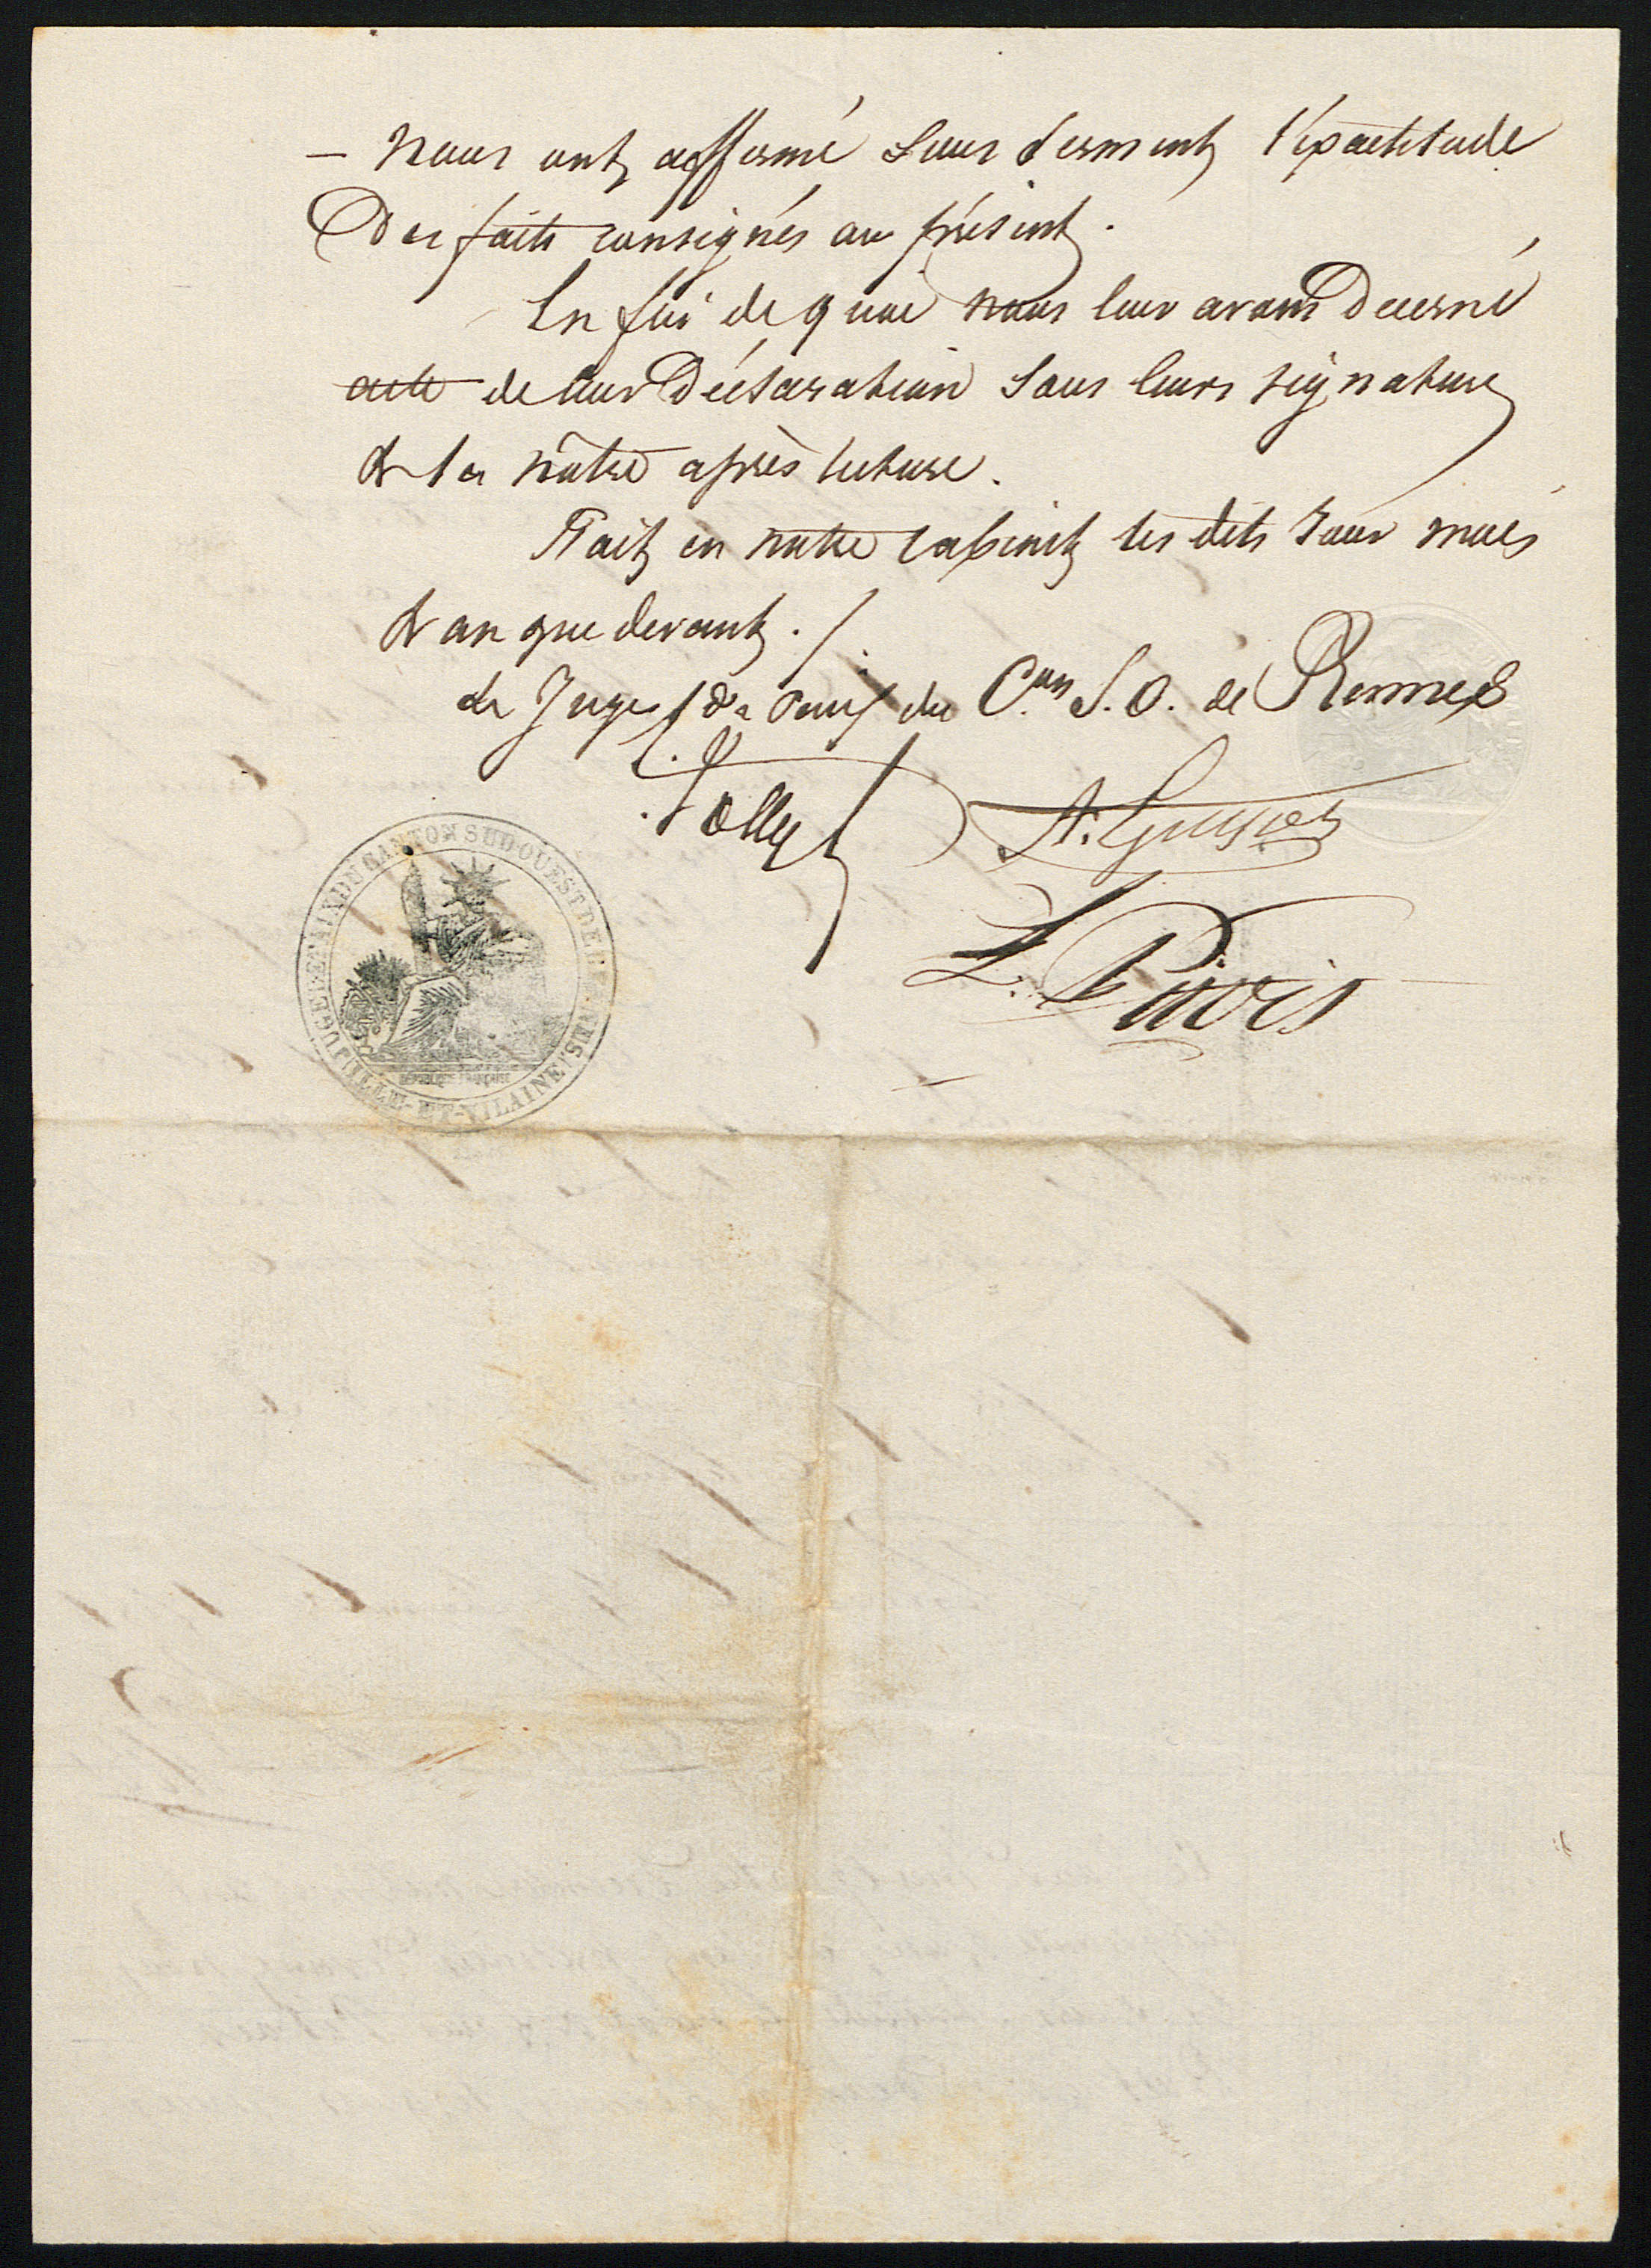 — Nous ont affirmé sous serment l'exactitude
Des faits consignés au présent.
En foi de quoi nous leur avons Décerné
acte de leur Déclaration sous leurs signature
& la nôtre après lecture.
Fait en notre cabinet les dits jour mois
& an que devant. /.
Le Juge de Paix du C.on S.O. de Rennes
L.
JUGE DE PAIX DU CANTON SUD-OUEST DE RENNES
RÉPUBLIQUE FRANÇAISE
ILLE-ET-VILAINE